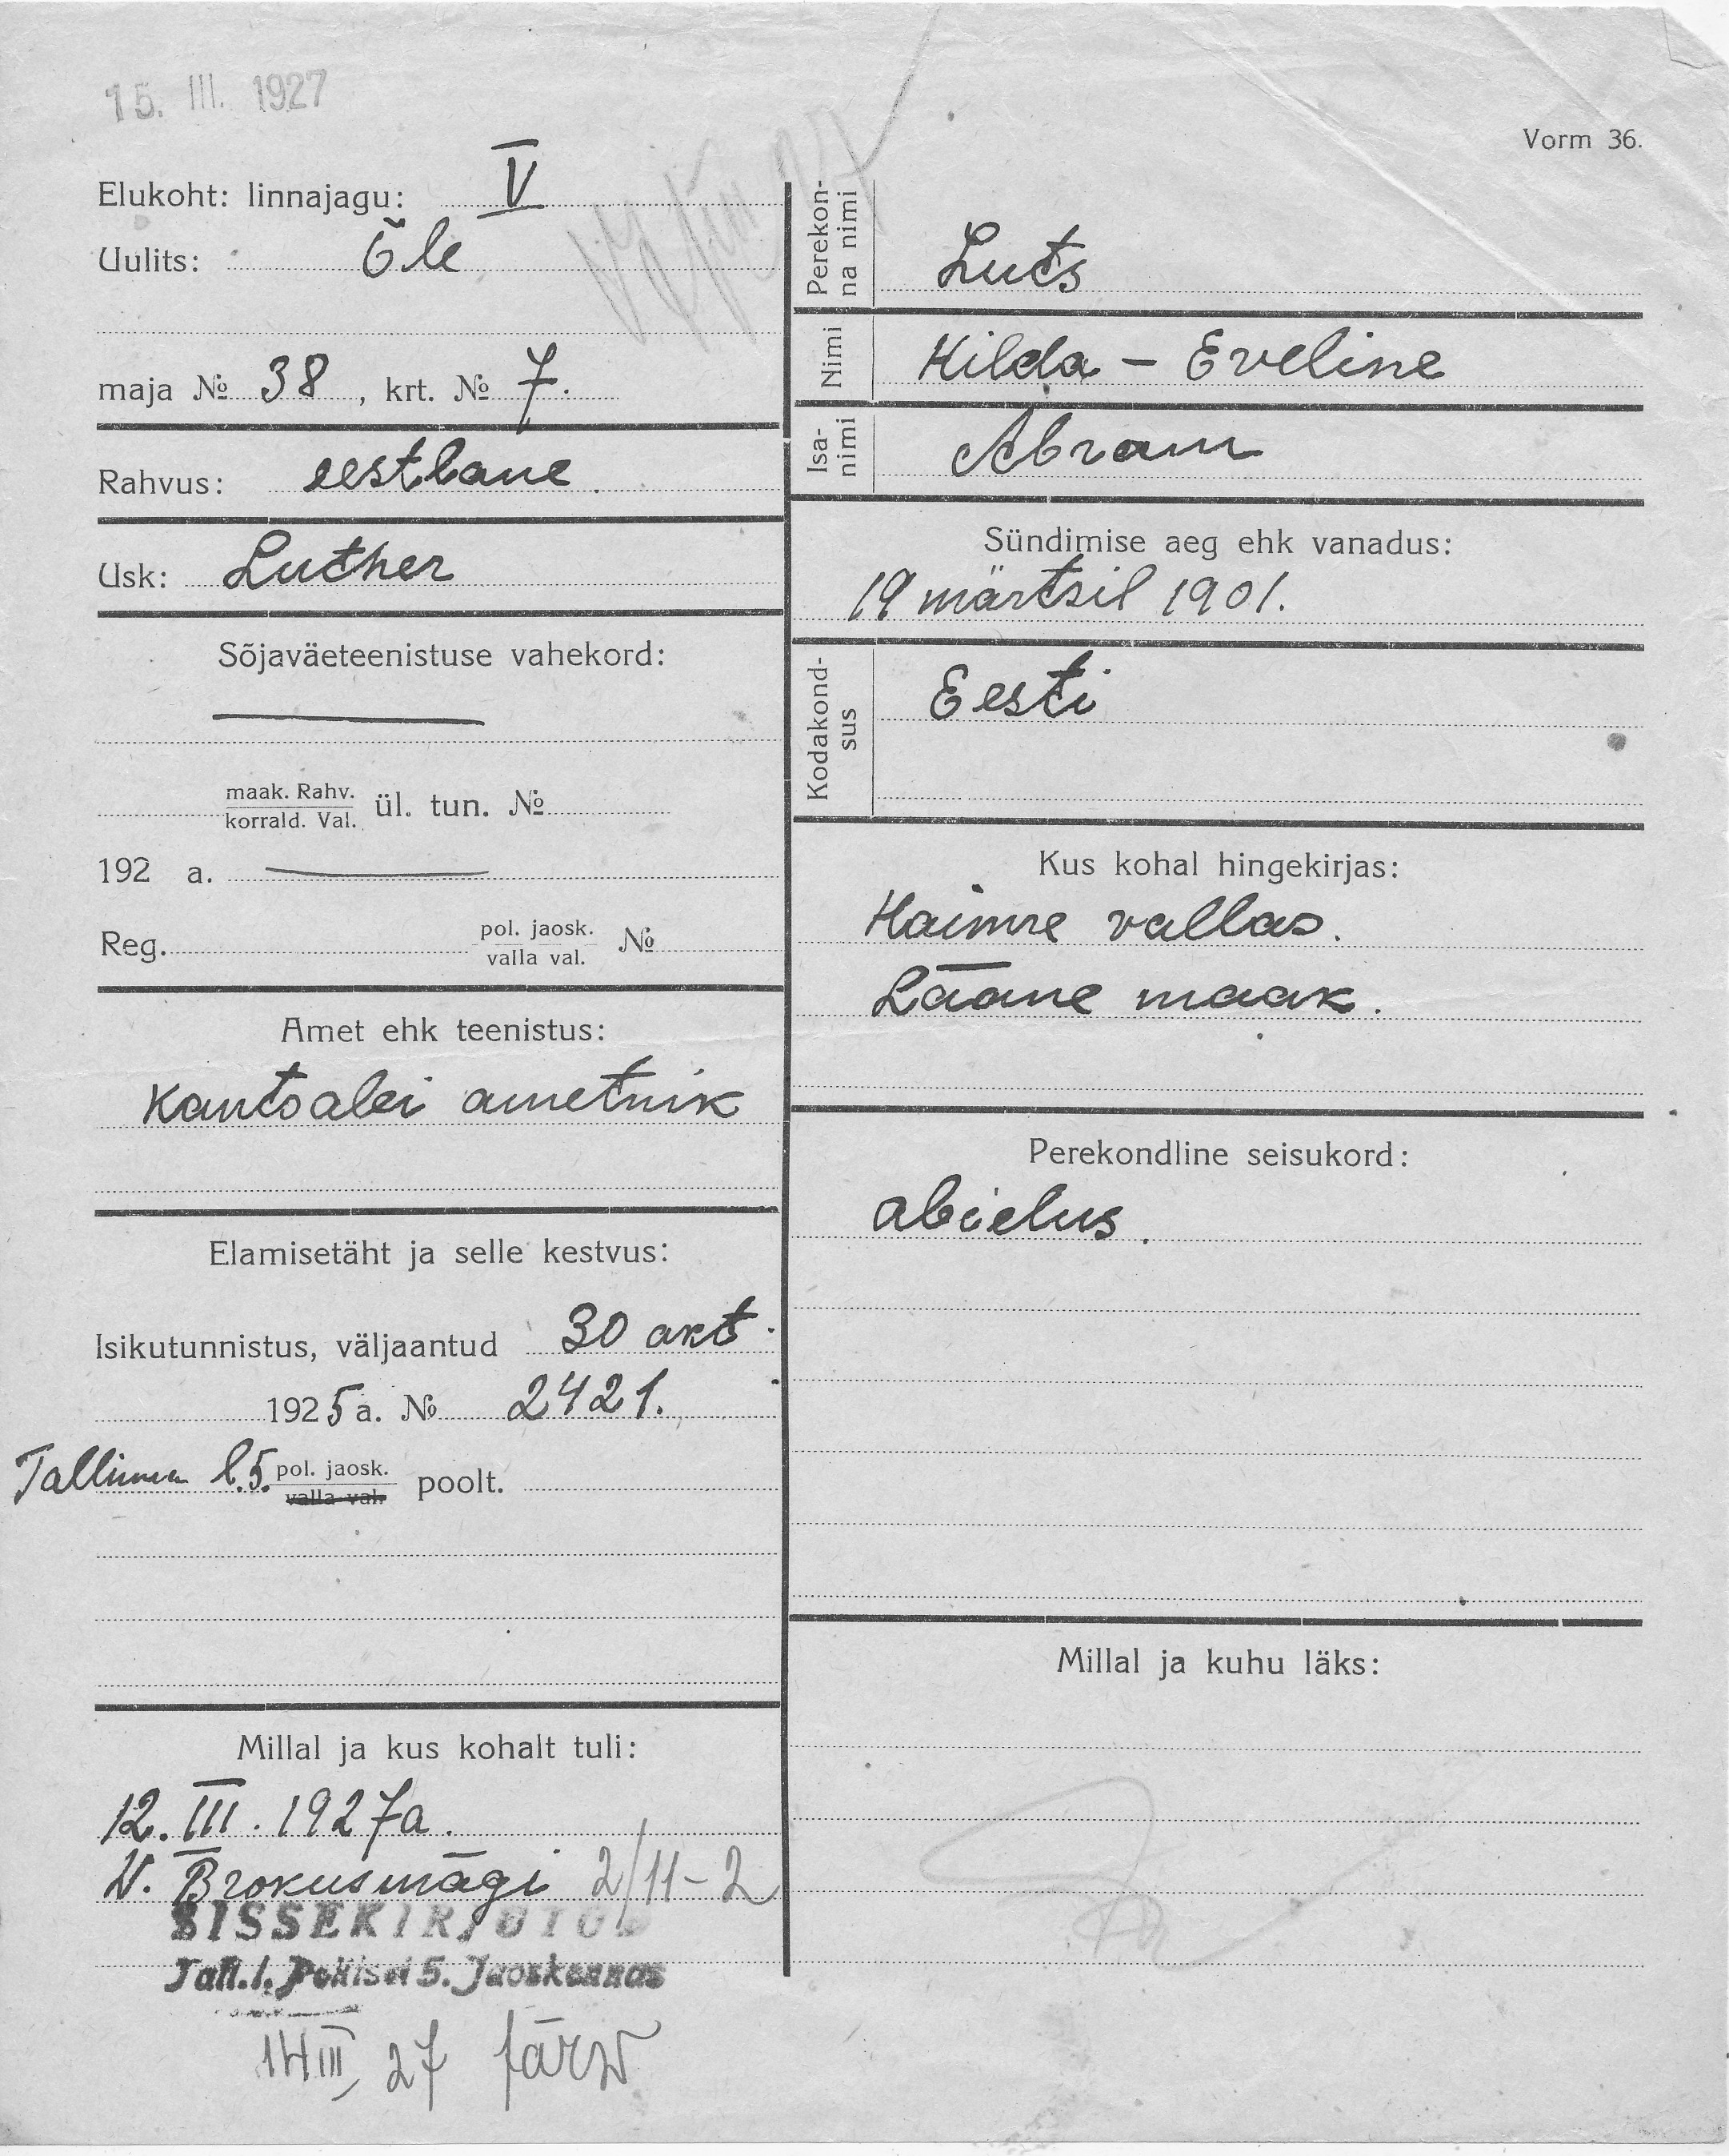 15. III. 1927
Vorm 36.
Elukoht: linnajagu: V
Uulits: Õle
maja № 38, krt. № 7.
Rahvus: eestlane.
Usk: Luther
Sõjaväeteenistuse vahekord:
maak. Rahv.
korrald. Val. ül. tun. №
192 a.
Reg. pol. jaosk.
valla val. №
Amet ehk teenistus:
Kantsalei ametnik
Elamisetäht ja selle kestvus:
Isikutunnistus, väljaantud 30 okt.
1925 a. № 2421.
Tallinna l. 5. pol. jaosk.
valla val. poolt.
Millal ja kus kohalt tuli:
12. III. 1927 a.
V. Brokusmägi 2/11-2
SISSEKIRJUTUD
Tall. l. Politsei 5. Jaoskonnas
14 III 27 Järw
Perekon-
na nimi
Luts
Nimi
Hilda - Eveline
Isa-
nimi
Abram
Sündimise aeg ehk vanadus:
19 märtsil 1901.
Kodakond-
sus
Eesti
Kus kohal hingekirjas:
Haimre vallas.
Lääne maak.
Perekondline seisukord:
abielus.
Millal ja kuhu läks: